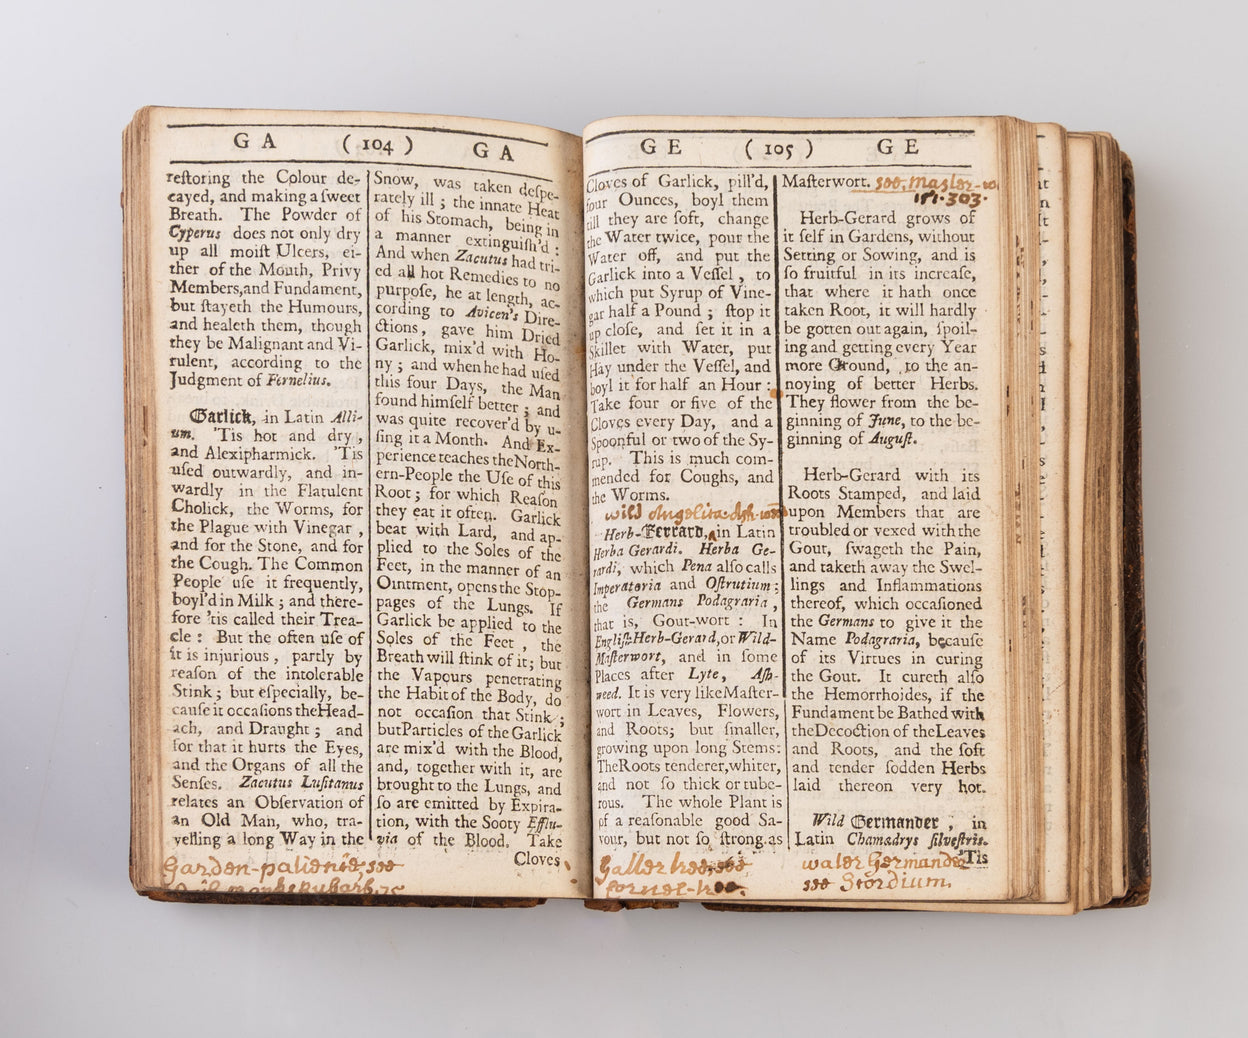 GA (104) GA
reſtoring the Colour de-
cayed, and making a ſweet
Breath. The Powder of
Cyperus does not only dry
up all moiſt Ulcers, ei-
ther of the Mouth, Privy
Members, and Fundament,
but ſtayeth the Humours,
and healeth them, though
they be Malignant and Vi-
rulent, according to the
Judgment of Fernelius.
Garlick, in Latin Alli-
um. 'Tis hot and dry,
and Alexipharmick. 'Tis
uſed outwardly, and in-
wardly in the Flatulent
Cholick, the Worms, for
the Plague with Vinegar,
and for the Stone, and for
the Cough. The Common
People uſe it frequently,
boyl'd in Milk; and there-
fore 'tis called their Trea-
cle: But the often uſe of
it is injurious, partly by
reaſon of the intolerable
Stink; but eſpecially, be-
cauſe it occaſions the Head-
ach, and Draught; and
for that it hurts the Eyes,
and the Organs of all the
Senſes. Zacutus Luſitanus
relates an Obſervation of
an Old Man, who, tra-
velling a long Way in the
Snow, was taken deſpe-
rately ill; the innate Heat
of his Stomach, being in
a manner extinguiſh'd:
And when Zacutus had tri-
ed all hot Remedies to no
purpoſe, he at length, ac-
cording to Avicen's Dire-
ctions, gave him Dried
Garlick, mix'd with Ho-
ny; and when he had uſed
this four Days, the Man
found himſelf better; and
was quite recover'd by u-
ſing it a Month. And Ex-
perience teaches the North-
ern-People the Uſe of this
Root; for which Reaſon
they eat it often. Garlick
beat with Lard, and ap-
plied to the Soles of the
Feet, in the manner of an
Ointment, opens the Stop-
pages of the Lungs. If
Garlick be applied to the
Soles of the Feet, the
Breath will ſtink of it; but
the Vapours penetrating
the Habit of the Body, do
not occaſion that Stink;
but Particles of the Garlick
are mix'd with the Blood,
and, together with it, are
brought to the Lungs, and
ſo are emitted by Expira-
tion, with the Sooty Efflu-
via of the Blood. Take
Cloves
Garden-patience, see
GE (105) GE
Cloves of Garlick, pill'd,
four Ounces, boyl them
till they are ſoft, change
the Water twice, pour the
Water off, and put the
Garlick into a Veſſel, to
which put Syrup of Vine-
gar half a Pound; ſtop it
up cloſe, and ſet it in a
Skillet with Water, put
Hay under the Veſſel, and
boyl it for half an Hour:
Take four or five of the
Cloves every Day, and a
Spoonful or two of the Sy-
rup. This is much com-
mended for Coughs, and
the Worms.
wild Angelica
Herb-Gerrard, in Latin
Herba Gerardi. Herba Ge-
rardi, which Pena alſo calls
Imperatoria and Oſtrutium;
the Germans Podagraria,
that is, Gout-wort: In
Engliſh Herb-Gerard, or Wild-
Maſterwort, and in ſome
Places after Lyte, Aſh-
weed. It is very like Maſter-
wort in Leaves, Flowers,
and Roots; but ſmaller,
growing upon long Stems:
The Roots tenderer, whiter,
and not ſo thick or tube-
rous. The whole Plant is
of a reaſonable good Sa-
vour, but not ſo ſtrong as
Maſterwort. see, Master-wo
303.
Herb-Gerard grows of
it ſelf in Gardens, without
Setting or Sowing, and is
ſo fruitful in its increaſe,
that where it hath once
taken Root, it will hardly
be gotten out again, ſpoil-
ing and getting every Year
more Ground, to the an-
noying of better Herbs.
They flower from the be-
ginning of June, to the be-
ginning of Auguſt.
Herb-Gerard with its
Roots Stamped, and laid
upon Members that are
troubled or vexed with the
Gout, ſwageth the Pain,
and taketh away the Swel-
lings and Inflammations
thereof, which occaſioned
the Germans to give it the
Name Podagraria, becauſe
of its Virtues in curing
the Gout. It cureth alſo
the Hemorrhoides, if the
Fundament be Bathed with
the Decoction of the Leaves
and Roots, and the ſoft
and tender ſodden Herbs
laid thereon very hot.
Wild Germander, in
Latin Chamædrys ſilveſtris.
'Tis
Gatter tree, see,
water Germander
see Scordium.